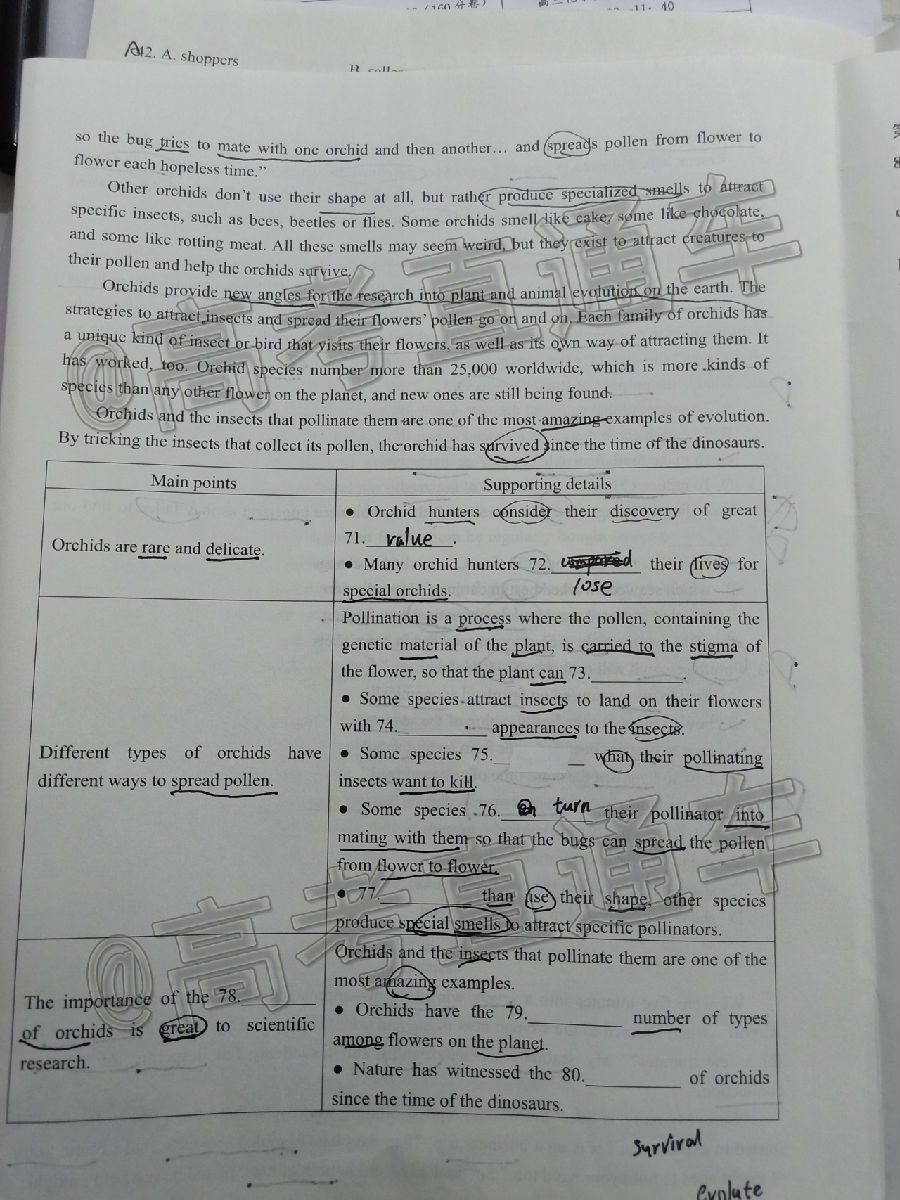 (160分卷)
11. 40
A 42. A. shoppers
so the bug tries to mate with one orchid and then another... and spreads pollen from flower to
flower each hopeless time."
Other orchids don't use their shape at all, but rather produce specialized smells to attract
specific insects, such as bees, beetles or flies. Some orchids smell like cake, some like chocolate,
and some like rotting meat. All these smells may seem weird, but they exist to attract creatures to
their pollen and help the orchids survive.
Orchids provide new angles for the research into plant and animal evolution on the earth. The
strategies to attract insects and spread their flowers' pollen go on and on. Each family of orchids has
a unique kind of insect or bird that visits their flowers, as well as its own way of attracting them. It
has worked, too. Orchid species number more than 25,000 worldwide, which is more kinds of
species than any other flower on the planet, and new ones are still being found.
Orchids and the insects that pollinate them are one of the most amazing examples of evolution.
By tricking the insects that collect its pollen, the orchid has survived since the time of the dinosaurs.
Main points
Supporting details
Orchids are rare and delicate.
● Orchid hunters consider their discovery of great
71. value .
● Many orchid hunters 72. compared their lives for
lose
special orchids.
Different types of orchids have
different ways to spread pollen.
Pollination is a process where the pollen, containing the
genetic material of the plant, is carried to the stigma of
the flower, so that the plant can 73.__________.
● Some species attract insects to land on their flowers
with 74.__________ appearances to the insects.
● Some species 75. __ what their pollinating
insects want to kill.
● Some species 76. turn their pollinator into
mating with them so that the bugs can spread the pollen
from flower to flower.
● 77.__________ than use their shape, other species
produce special smells to attract specific pollinators.
The importance of the 78.________
of orchids is great to scientific
research.
Orchids and the insects that pollinate them are one of the
most amazing examples.
● Orchids have the 79.__________ number of types
among flowers on the planet.
● Nature has witnessed the 80.__________ of orchids
since the time of the dinosaurs.
survival
evolute
@高考直通车
@高考直通车